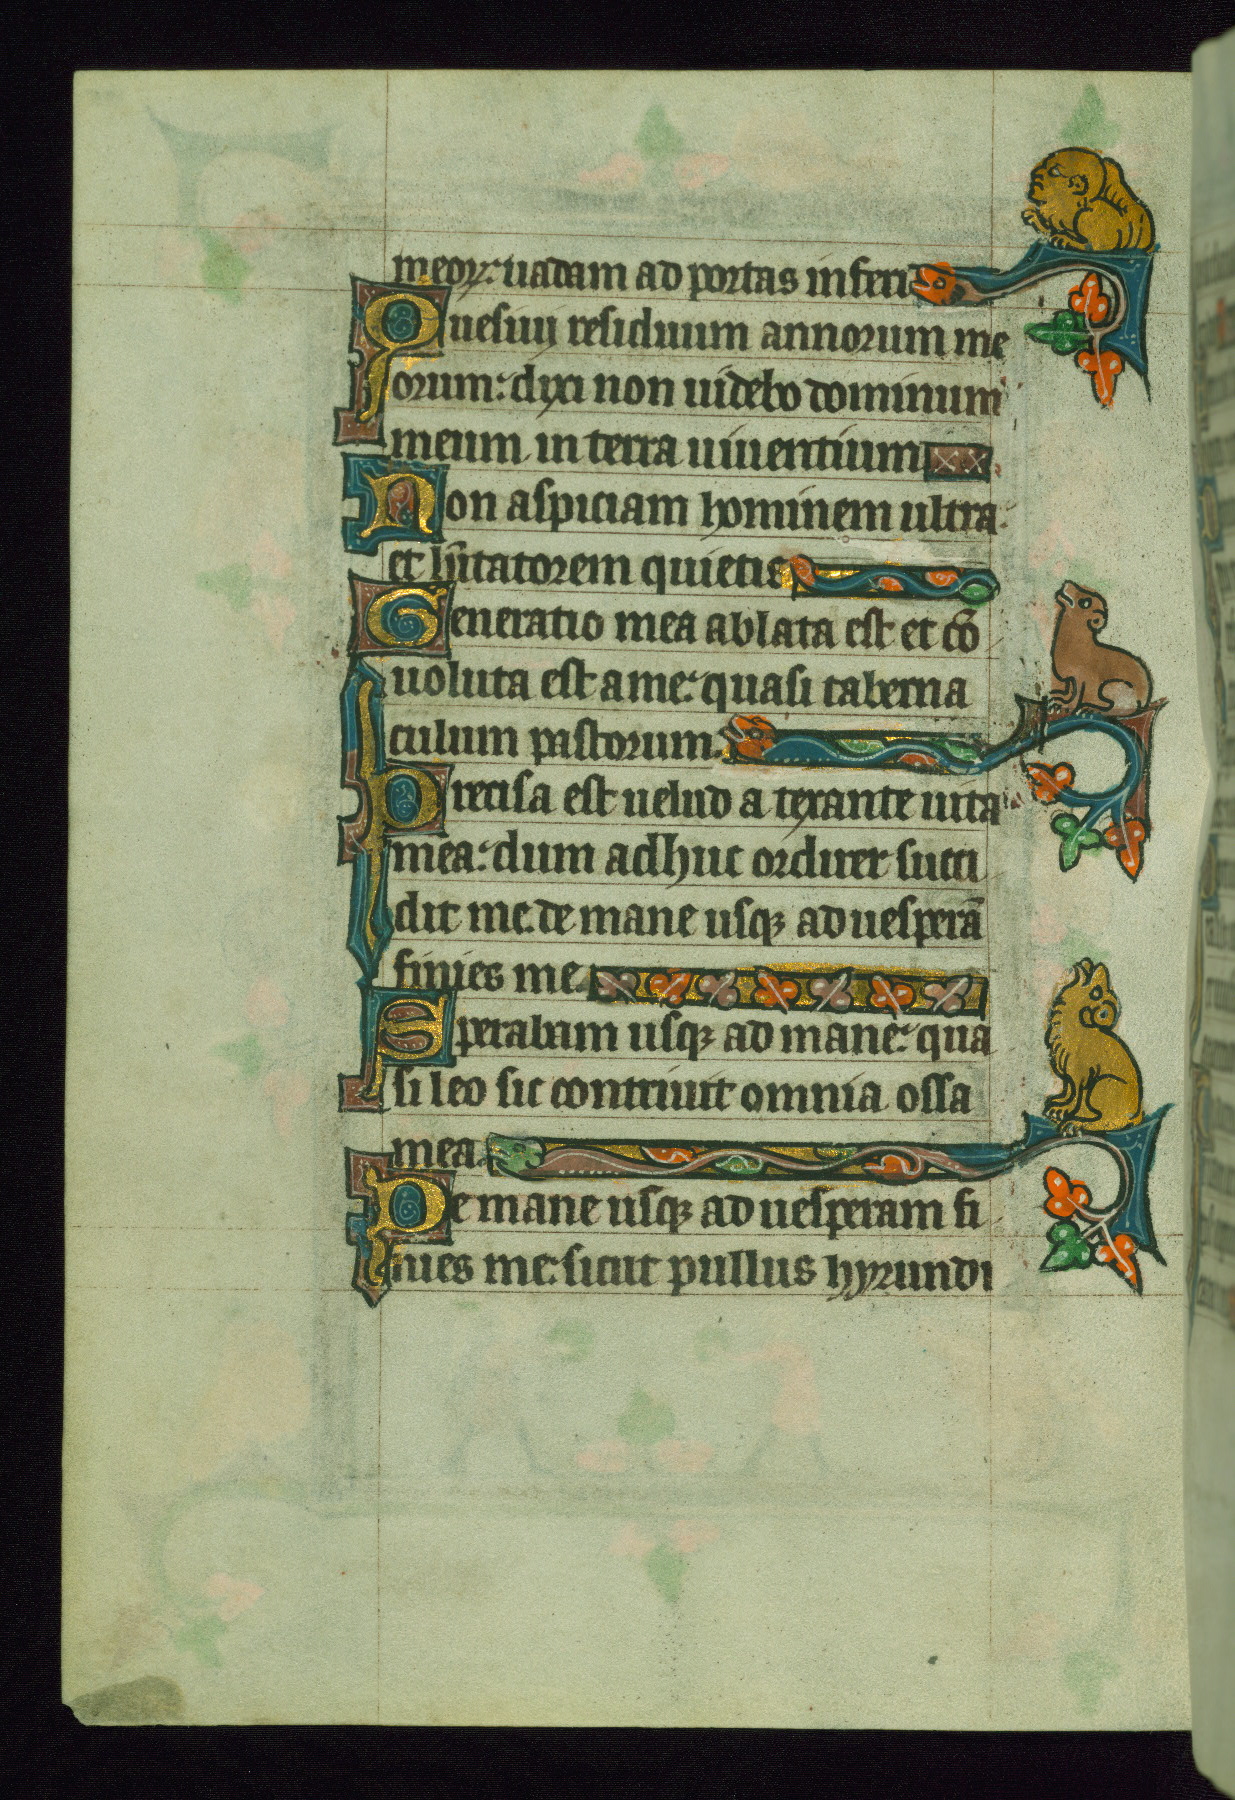 meoꝝ: uadam ad portas inferi
Quesiuj residuum annorum me
orum: dixi non uidebo dominum
meum in terra uiuentium
Non aspiciam hominem ultra
et h̃itatorem quietis
Generatio mea ablata est et cõ
uoluta est a me: quasi taberna
culum pastorum.
Precisa est uelud a texante uita
mea: dum adhuc ordirer succi
dit me. de mane usqꝫ ad uesperã
finies me.
Sperabam usqꝫ ad mane: qua
si leo sic contriuit omnia ossa
mea.
De mane usqꝫ ad uesperam fi
nies me: sicut pullus hyrundi